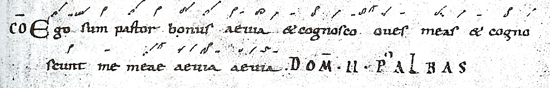 CŌ Ego sum pastor bonus aeuia & cognosco oues meas & cogno
scunt me meae aeuia aeuia. DOM̄·II·P̊ ALBAS